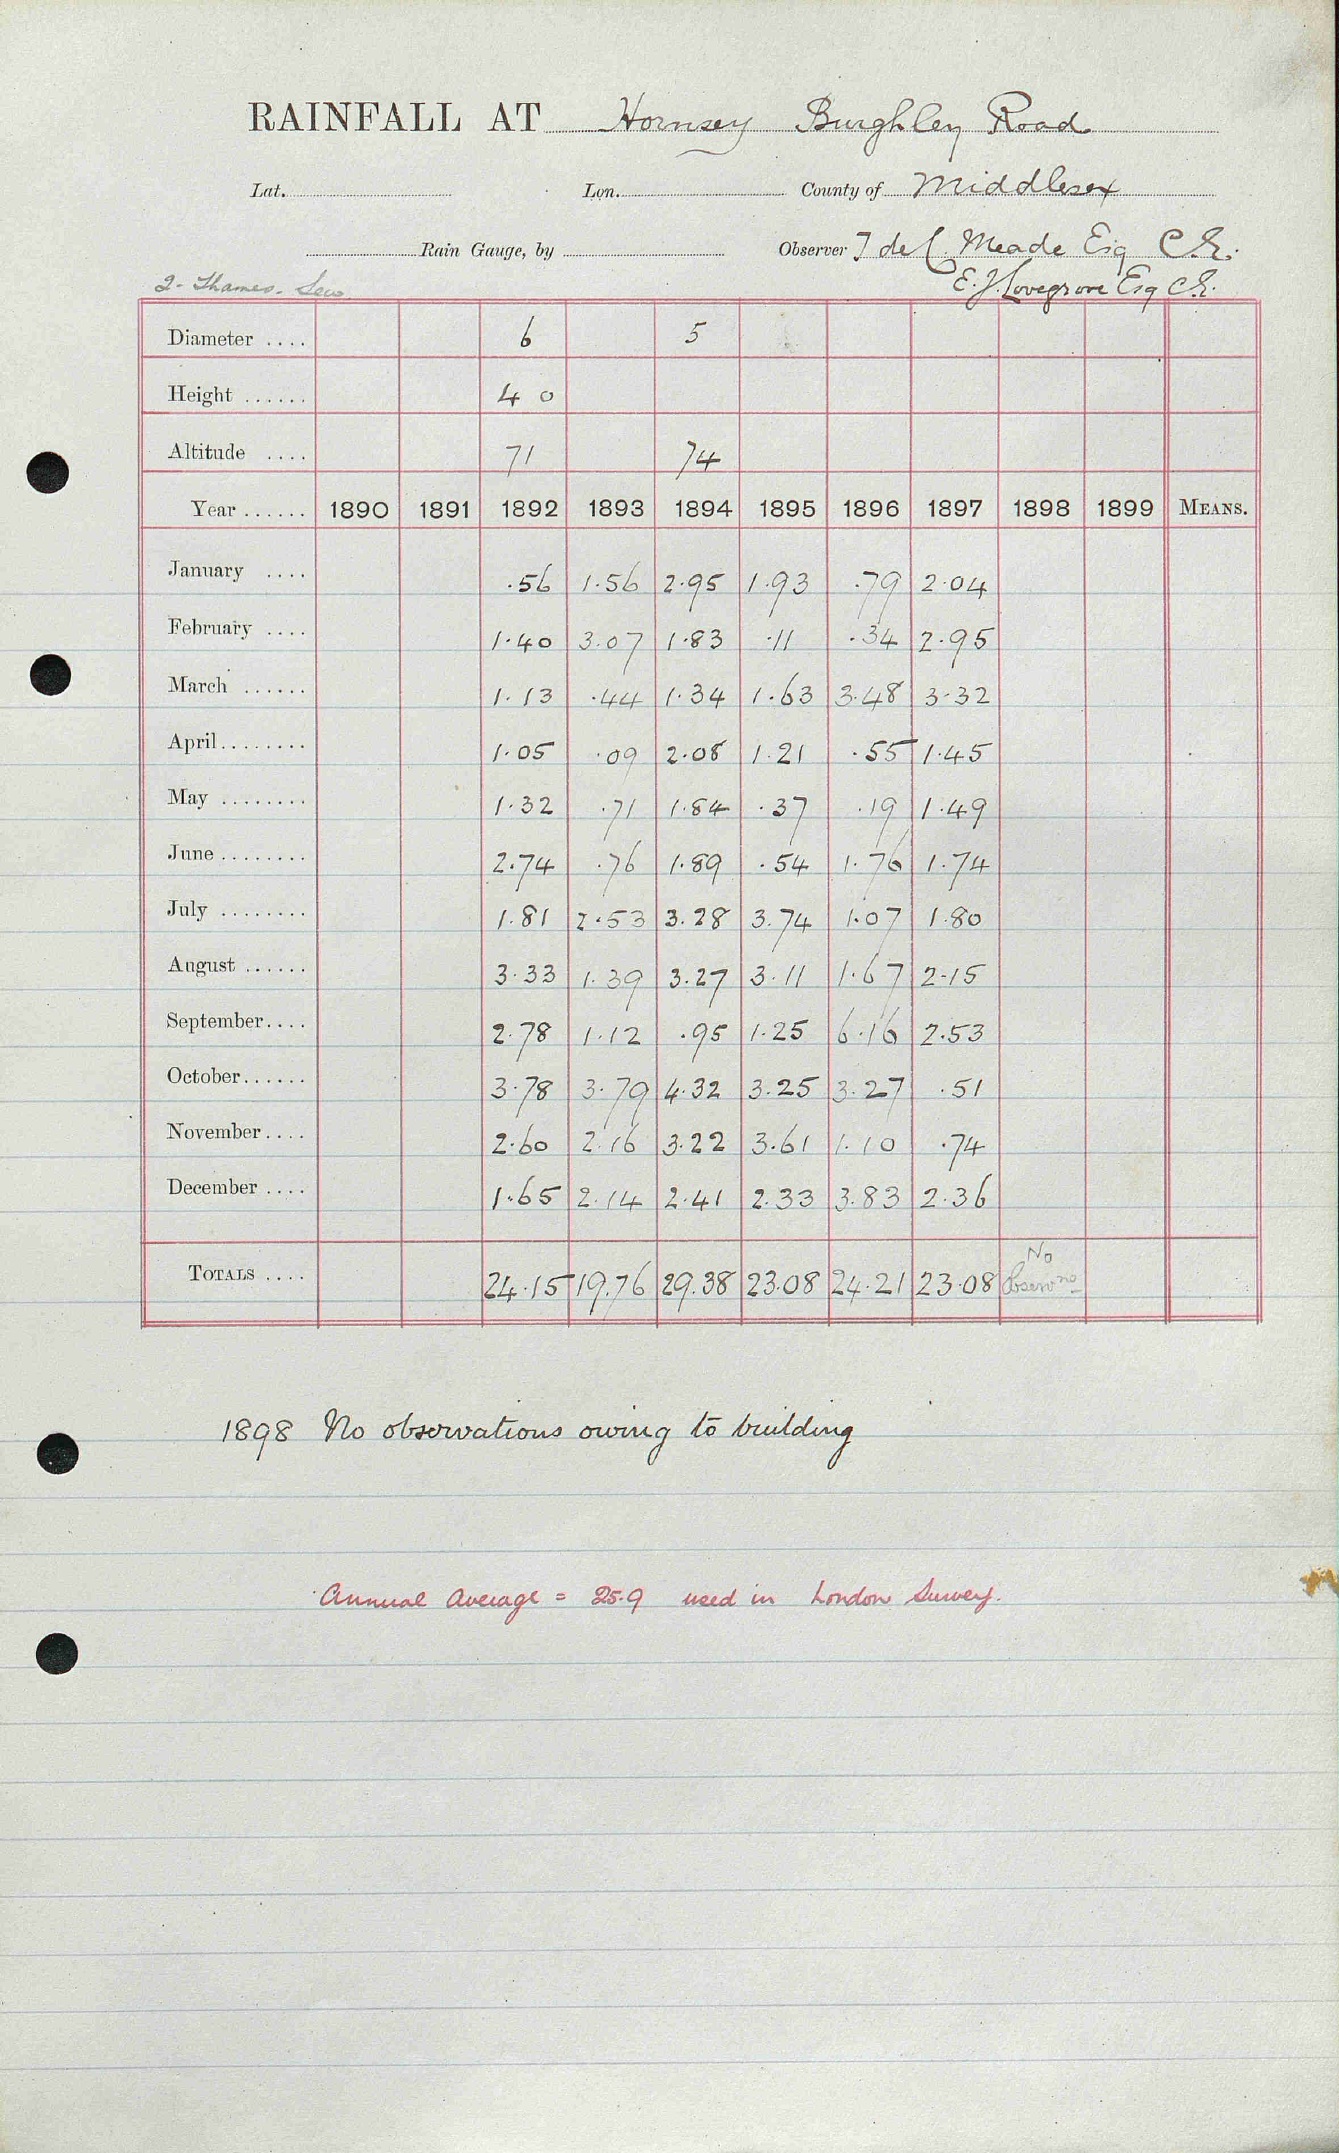 RAINFALL AT Hornsey Burghley Road
Lat. Lon. County of Middlesex
Rain Gauge, by Observer T de C. Meade Esq C.E.
2- Thames. E.J. Lovegrove Esq C.E.
Diameter .... 6 5
Height ...... 4 0
Altitude .... 71 74
Year ...... 1890 1891 1892 1893 1894 1895 1896 1897 1898 1899 MEANS.
January .... .56 1.56 2.95 1.93 .79 2.04
February .... 1.40 3.07 1.83 .11 .34 2.95
March ...... 1.13 .44 1.34 1.63 3.48 3.32
April........ 1.05 .09 2.08 1.21 .55 1.45
May ........ 1.32 .71 1.84 .37 .19 1.49
June ........ 2.74 .76 1.89 .54 1.76 1.74
July ........ 1.81 2.53 3.28 3.74 1.07 1.80
August ...... 3.33 1.39 3.27 3.11 1.67 2.15
September.... 2.78 1.12 .95 1.25 6.16 2.53
October...... 3.78 3.79 4.32 3.25 3.27 .51
November.... 2.60 2.16 3.22 3.61 1.10 .74
December .... 1.65 2.14 2.41 2.33 3.83 2.36
TOTALS .... 24.15 19.76 29.38 23.08 24.21 23.08 No Observns
1898 No observations owing to building
Annual Average = 25.9 used in London Survey.